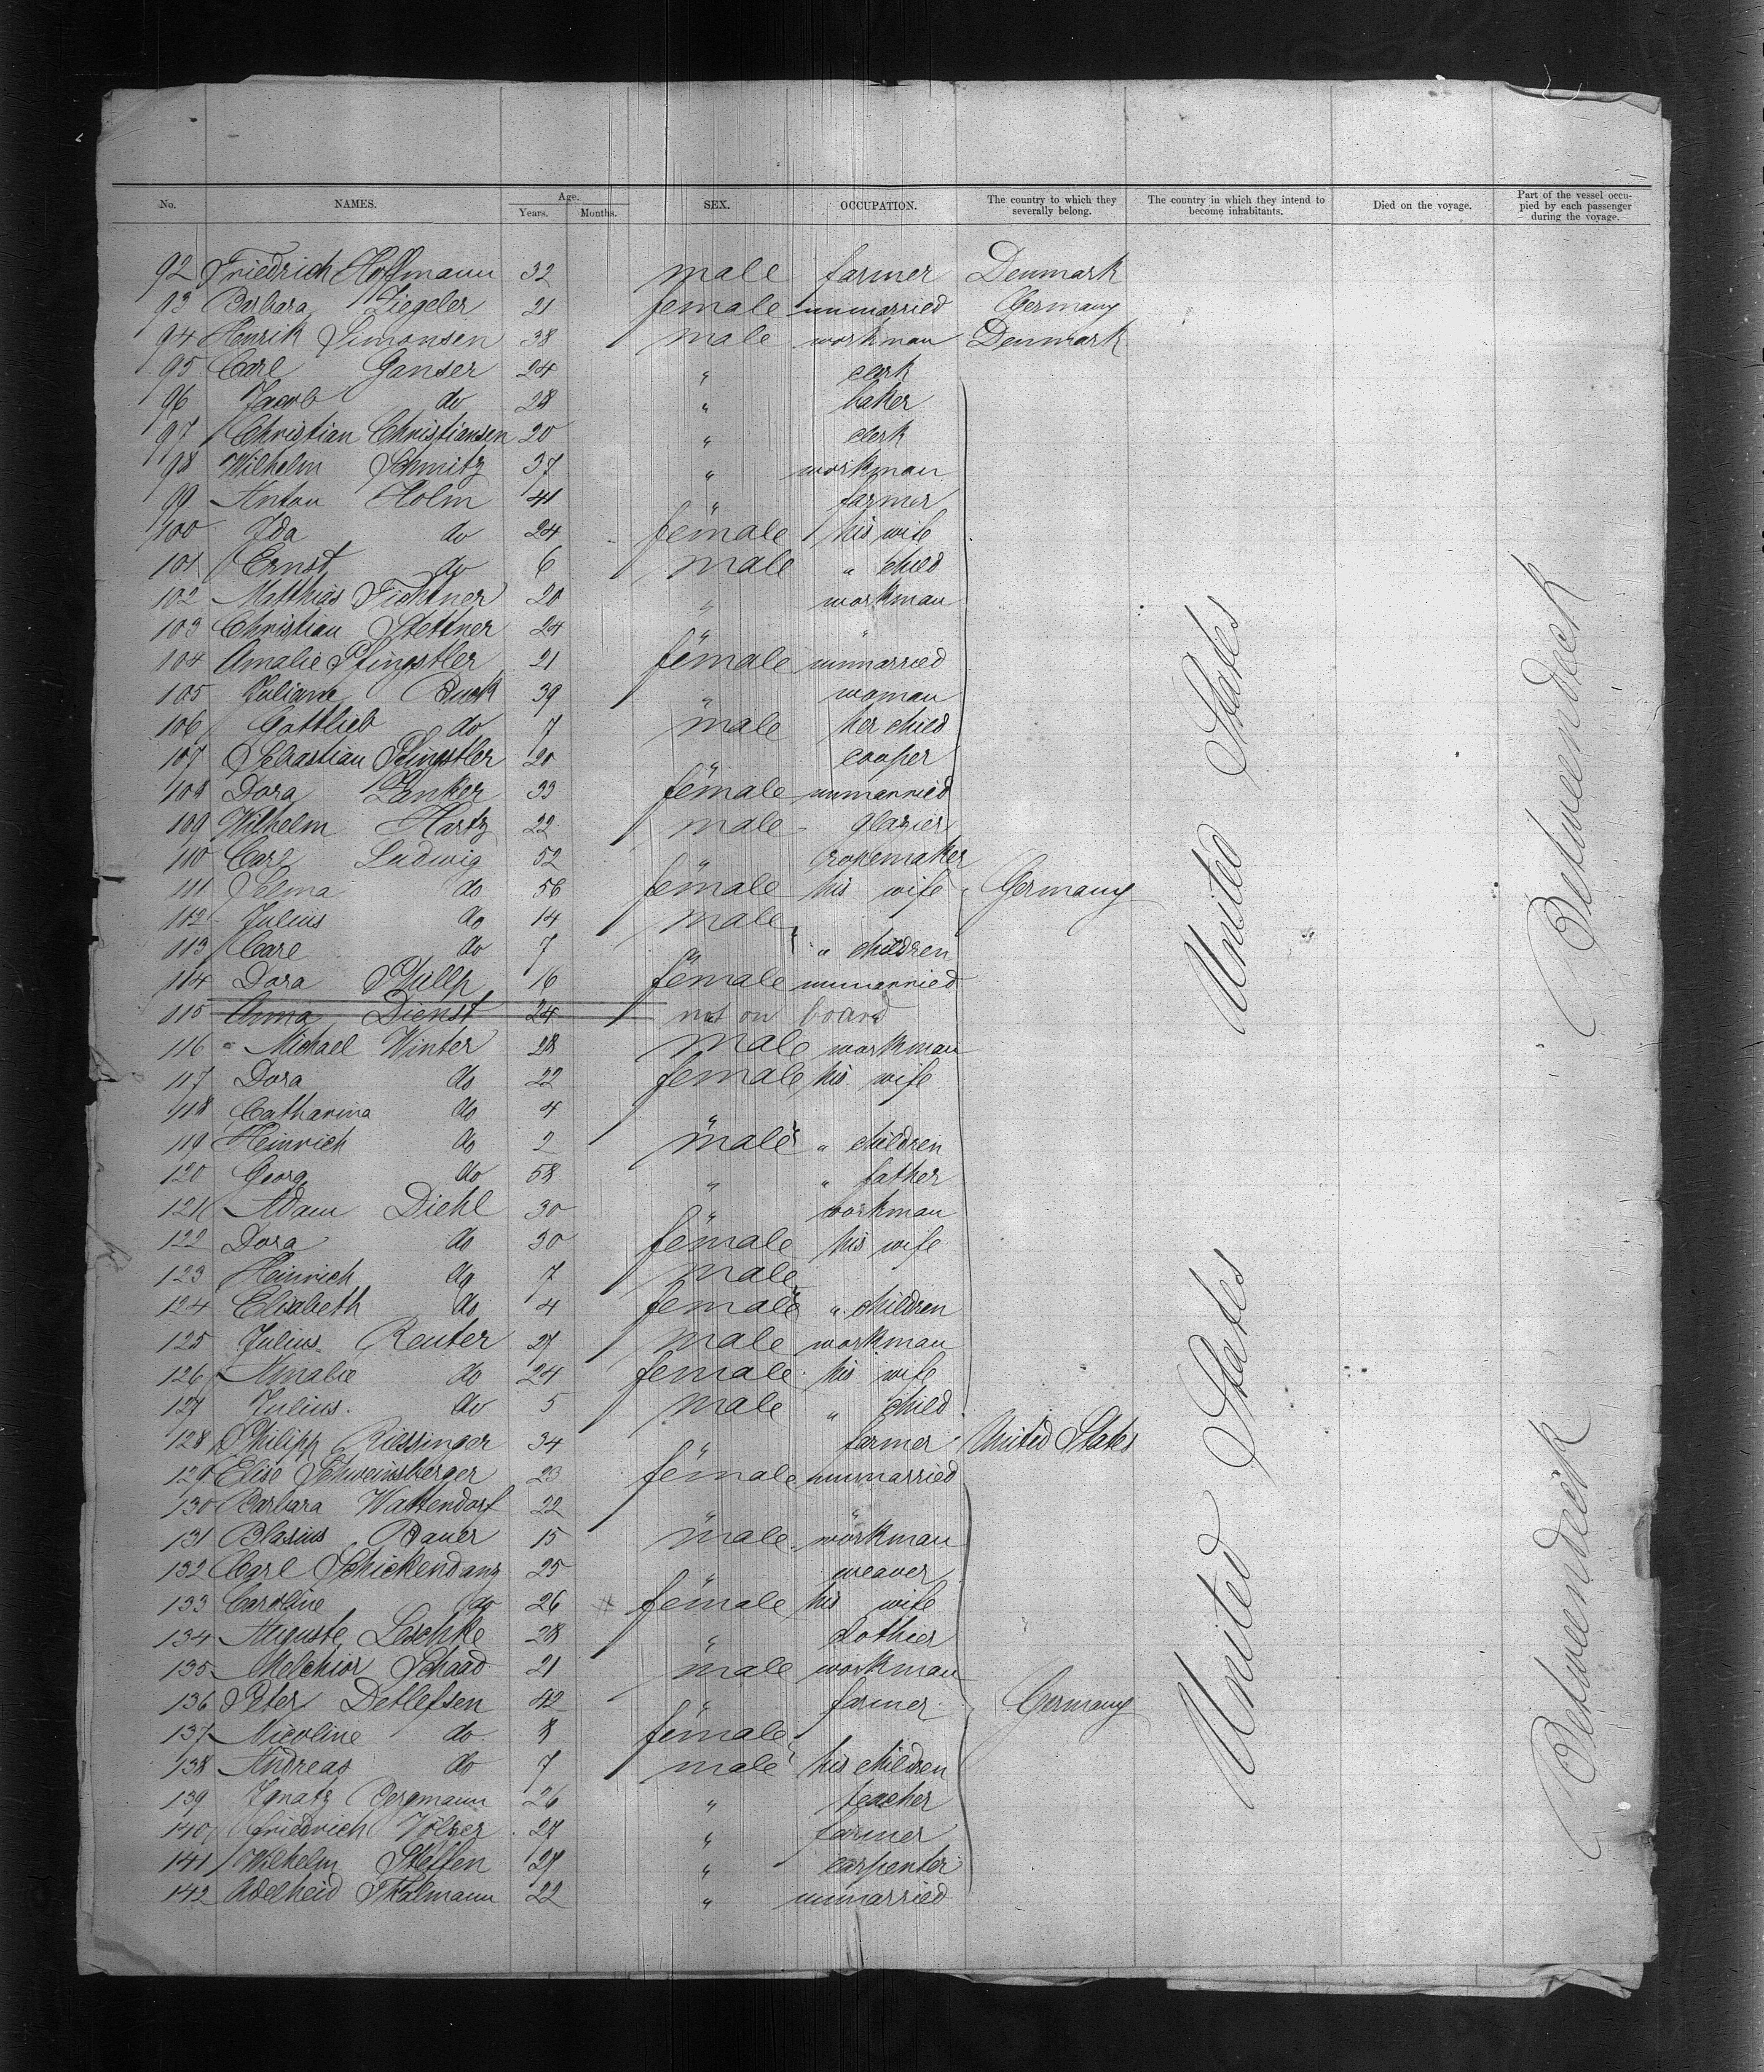 No. NAMES. Age. Years. Months. SEX. OCCUPATION. The country to which they severally belong. The country in which they intend to become inhabitants. Died on the voyage. Part of the vessel occupied by each passenger during the voyage.
92 Friedrich Hoffmann 32 male farmer Denmark
93 Barbara Ziegeler 21 female unmarried Germany
94 Henrik Simonsen 38 male workman Denmark
95 Carl Ganser 24 " clerk
96 Jacob do 28 " baker
97 Christian Christiansen 20 " clerk
98 Wilhelm Schmitz 37 " workman
99 Anton Holm 41 " farmer
100 Ida do 24 female his wife
101 Ernst do 6 male " child
102 Matthias Fichtner 20 " workman
103 Christian Stettner 24 " "
104 Amalie Pfingstler 21 female unmarried
105 Juliane Buck 39 " woman
106 Gottlieb do 7 male her child
107 Sebastian Pfingstler 20 " cooper
108 Dora Lanker 33 female unmarried
109 Wilhelm Hartz 22 male glazier
110 Carl Ludwig 52 " ropemaker
111 Selma do 56 female his wife Germany
112 Julius do 14 male
113 Carl do 7 " " children
114 Dora 16 female unmarried
115 Anna Dienst 24 not on board
116 Michael Winter 28 male workman
117 Dora do 22 female his wife
118 Catharina do 4 "
119 Heinrich do 2 male " children
120 Georg do 58 " " father
121 Adam Diehl 30 " workman
122 Dora do 30 female his wife
123 Heinrich do 7 male
124 Elisabeth do 4 female " children
125 Julius Reuter 27 male workman
126 Amalie do 24 female his wife
127 Julius do 5 male " child
128 Philipp Riessinger 34 " farmer United States
129 Elise Schweinsberger 23 female unmarried
130 Barbara Wattendorf 22 " "
131 Blasius Bauer 15 male workman
132 Carl Schickendanz 25 " weaver
133 Caroline do 26 female his wife
134 Auguste Leschke 28 " clothier
135 Melchior Schaad 21 male workman
136 Peter Detlefsen 42 " farmer Germany
137 Nicoline do 8 female
138 Andreas do 7 male his children
139 Ignatz Bergmann 26 " teacher
140 Friedrich Völker 27 " farmer
141 Wilhelm Steffen 27 " carpenter
142 Adelheid Thalmann 22 " unmarried
United States
United States
Betweendeck
Betweendeck